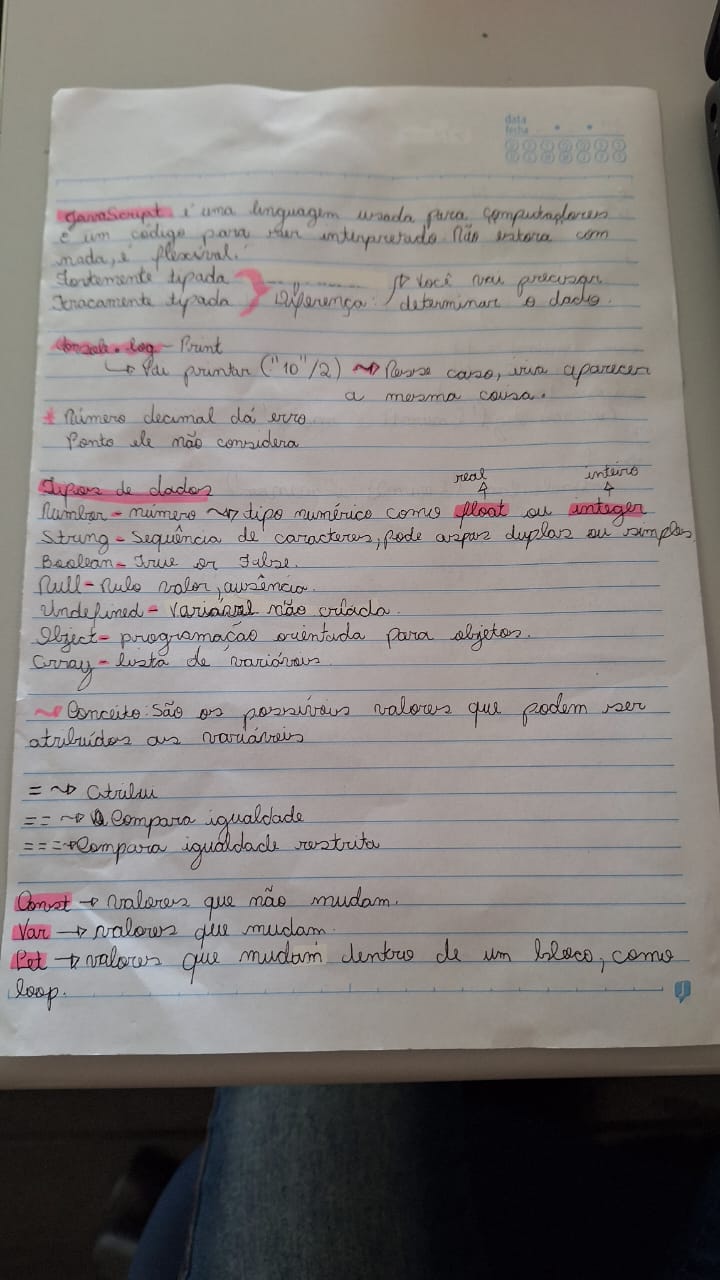 data
fecha
JavaScript é uma linguagem usada para computadores
e um código para ser interpretado. Não estora com
nada, é flexível.
Fortemente tipada
Fracamente tipada } Diferença: ↱ Você vai precisar
determinar o dado.
Console.log – Print
↳ Vai printar ("10"/2) ~> Nesse caso, iria aparecer
a mesma coisa.
* Número decimal dá erro
Ponto ele não considera
Tipos de dados
real inteiro
Number – número ~> tipo numérico como float ou integer
String – Sequência de caracteres, pode aspas duplas ou simples
Boolean – True or False.
Null – Nulo valor, ausência.
Undefined – Variável não criada.
Object – programação orientada para objetos.
Array – lista de variáveis
~ Conceito: São os possíveis valores que podem ser
atribuídos as variáveis
= ~> Atribui
== ~> Compara igualdade
=== → Compara igualdade restrita
Const → valores que não mudam.
Var → valores que mudam.
Let → valores que mudam dentro de um bloco, como
loop.